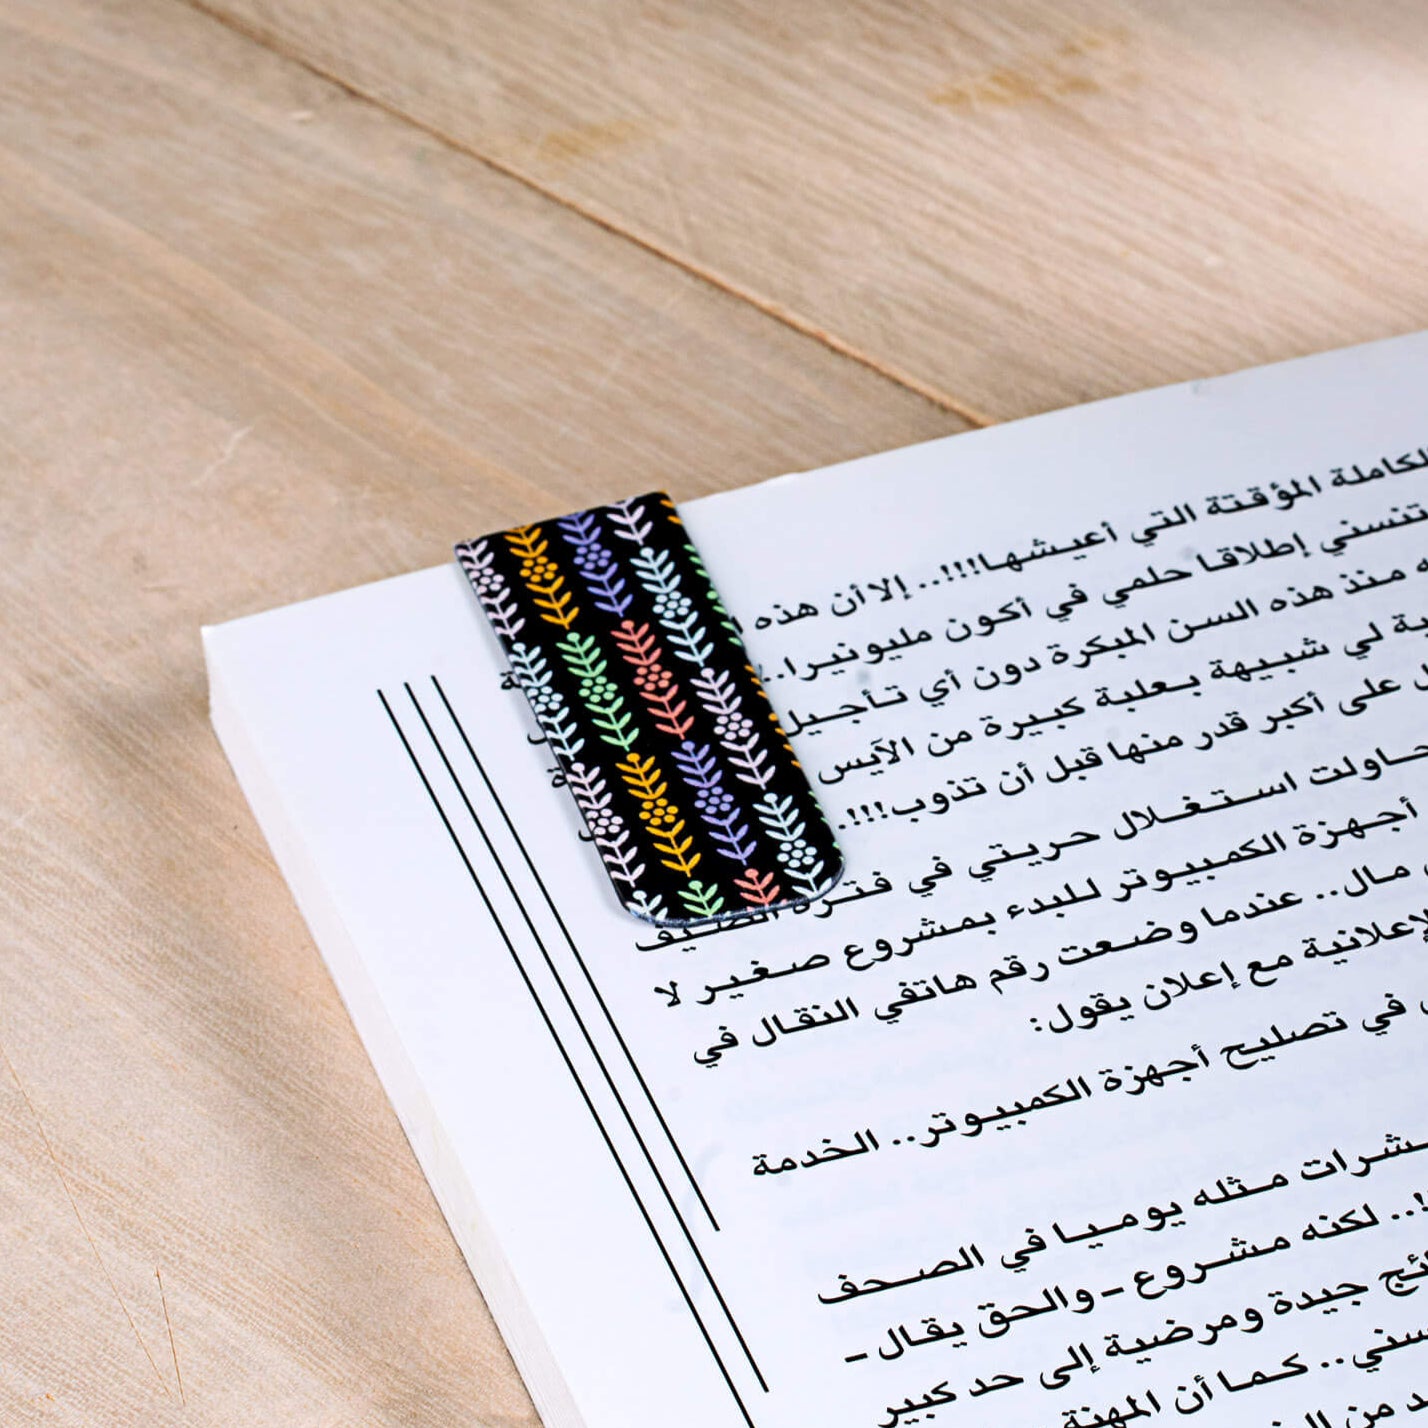 الكاملة المؤقتة التي أعيشها!!!.. إلا أن هذه
تنسني إطلاقا حلمي في أكون مليونيرا..
منذ هذه السن المبكرة دون أي تأجيل
لي شبيهة بعلبة كبيرة من الآيس
على أكبر قدر منها قبل أن تذوب!!!.
استغلال حريتي في فترة الصيف
أجهزة الكمبيوتر للبدء بمشروع صغير لا
مال.. عندما وضعت رقم هاتفي النقال في
مع إعلان يقول:
في تصليح أجهزة الكمبيوتر.. الخدمة
مثله يوميا في الصحف
لكنه مشروع - والحق يقال -
جيدة ومرضية إلى حد كبير
كما أن المهنة
من